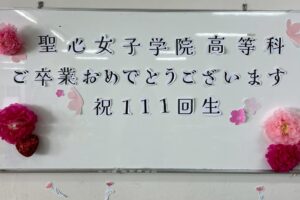 聖心女子学院高等科
ご卒業おめでとうございます
祝111回生